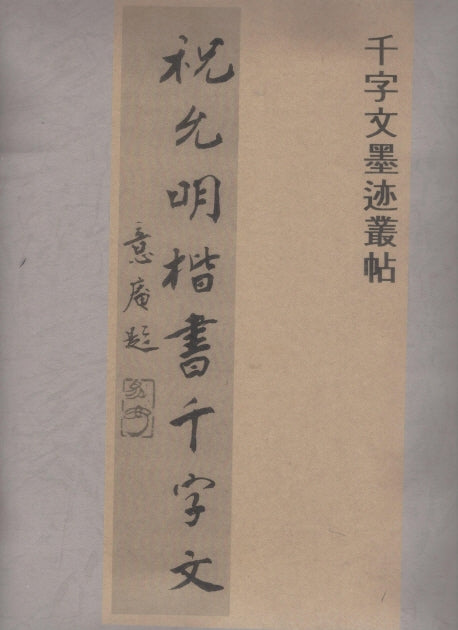 千字文墨迹叢帖
祝允明楷書千字文
意庵題